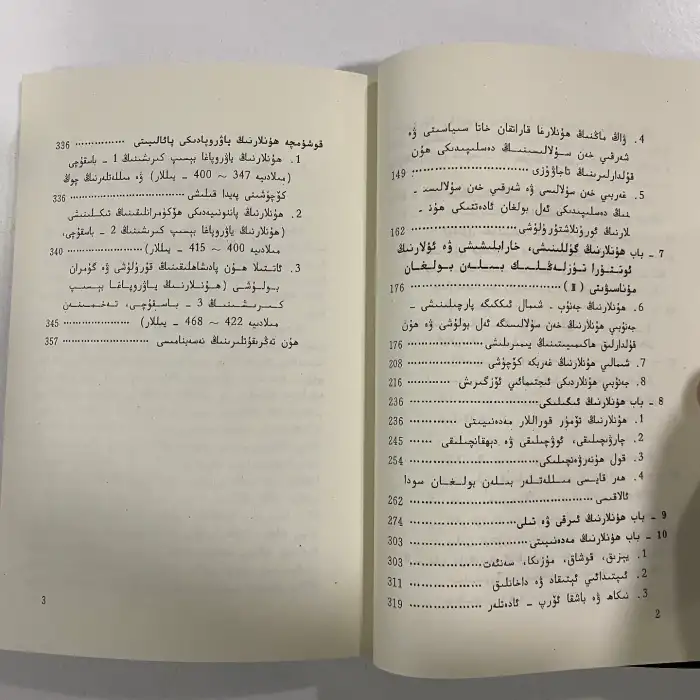 4. ۋاڭ ماڭنىڭ ھۇنلارغا قاراتقان خاتا سىياسىتى ۋە
شەرقىي خەن سۇلالىسىنىڭ دەسلىپىدىكى ھۇن
قۇلدارلىرىنىڭ تاجاۋۇزى ........................ 149
5. غەربىي خەن سۇلالىسى ۋە شەرقىي خەن سۇلالىسى -
نىڭ دەسلىپىدىكى ئەل بولغان ئادەتتىكى ھۇن -
لارنىڭ ئورۇنلاشتۇرۇلۇشى ........................ 162
7 - باب ھۇنلارنىڭ گۈللىنىشى، خارابلىشىشى ۋە ئۇلارنىڭ
ئوتتۇرا تۈزلەڭلىك بىلەن بولغان
مۇناسىۋىتى (Ⅱ) ........................ 176
6. ھۇنلارنىڭ جەنۇب، شىمال ئىككىگە پارچىلىنىشى -
جەنۇبىي ھۇنلارنىڭ خەن سۇلالىسىگە ئەل بولۇشى ۋە ھۇن
قۇلدارلىق ھاكىمىيىتىنىڭ يىمىرىلىشى ............ 176
7. شىمالىي ھۇنلارنىڭ غەربكە كۆچۈشى ............ 208
8. جەنۇبىي ھۇنلاردىكى ئىجتىمائىي ئۆزگىرىش ............ 216
8 - باب ھۇنلارنىڭ ئىگىلىكى ........................ 236
1. ھۇنلارنىڭ تۆمۈر قوراللار مەدەنىيىتى ............ 236
2. چارۋىچىلىقى، ئوۋچىلىقى ۋە دېھقانچىلىقى ...... 245
3. قول ھۈنەرۋەنچىلىكى ........................ 254
4. ھەر قايسى مىللەتلەر بىلەن بولغان سودا
ئالاقىسى ........................ 262
9 - باب ھۇنلارنىڭ ئىرقى ۋە تىلى ........................ 274
10 - باب ھۇنلارنىڭ مەدەنىيىتى ........................ 303
1. يېزىق، قوشاق، مۇزىكا، سەنئەت ............ 303
2. ئىپتىدائىي ئېتىقاد ۋە داخانلىق ............ 311
3. نىكاھ ۋە باشقا ئۆرپ - ئادەتلەر ............ 319
2
قوشۇمچە ھۇنلارنىڭ ياۋروپادىكى پائالىيىتى ............ 336
1. ھۇنلارنىڭ ياۋروپاغا بېسىپ كىرىشىنىڭ 1 - باسقۇچى
(مىلادىيە 347 ～ 400 - يىللار) ۋە مىللەتلەرنىڭ چوڭ
كۆچۈشىنى پەيدا قىلىشى ........................ 336
2. ھۇنلارنىڭ پاننونىيەدىكى ھۆكۈمرانلىقىنىڭ تىكلىنىشى
(ھۇنلارنىڭ ياۋروپاغا بېسىپ كىرىشىنىڭ 2 - باسقۇچى،
مىلادىيە 400 ～ 415 - يىللار) ........................ 340
3. ئاتتىلا ھۇن پادىشاھلىقىنىڭ قۇرۇلۇشى ۋە گۇمران
بولۇشى (ھۇنلارنىڭ ياۋروپاغا بېسىپ
كىرىشىنىڭ 3 - باسقۇچى، تەخمىنەن
مىلادىيە 422 ～ 468 - يىللار) ............ 345
ھۇن تەڭرىقۇتلىرىنىڭ نەسەبنامىسى ............ 357
3